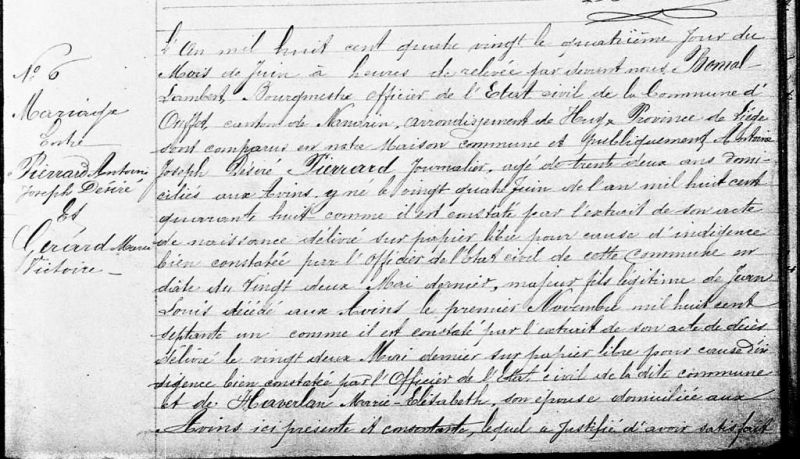 N° 6
Mariage
Entre
Piérrard Antoine
Joseph Désiré
Et
Gérard Marie
Victoire
L'An mil huit cent quatre vingt le quatrième jour du
Mois de Juin à heures de relevée par devant nous
Lambert, Bourgmestre officier de l'Etat civil de la Commune d'
Ouffet, canton de Nandrin, arrondissement de Huy, Province de Liége
sont comparus en notre Maison commune et publiquement Antoine
Joseph Désiré Piérrard Journalier, agé de trente deux ans domi-
ciliés aux Avins, y né le vingt quatre Juin de l'an mil huit cent
quarante huit comme il est constaté par l'extrait de son acte
de naissance délivré sur papier libre pour cause d'indigence
bien constatée par l'Officier de l'Etat civil de cette commune en
date du vingt deux Mai dernier, majeur fils légitime de Jean
Louis décédé aux Avins le premier Novembre mil huit cent
septante un comme il est constaté par l'extrait de son acte de décès
délivré le vingt deux Mai dernier sur papier libre pour cause d'in
digence bien constatée par l'Officier de l'Etat civil de la dite commune
et de Haverlan Marie-Elisabeth, son épouse domiciliée aux
Avins ici présente et consentante, lequel a justifié d'avoir satisfait